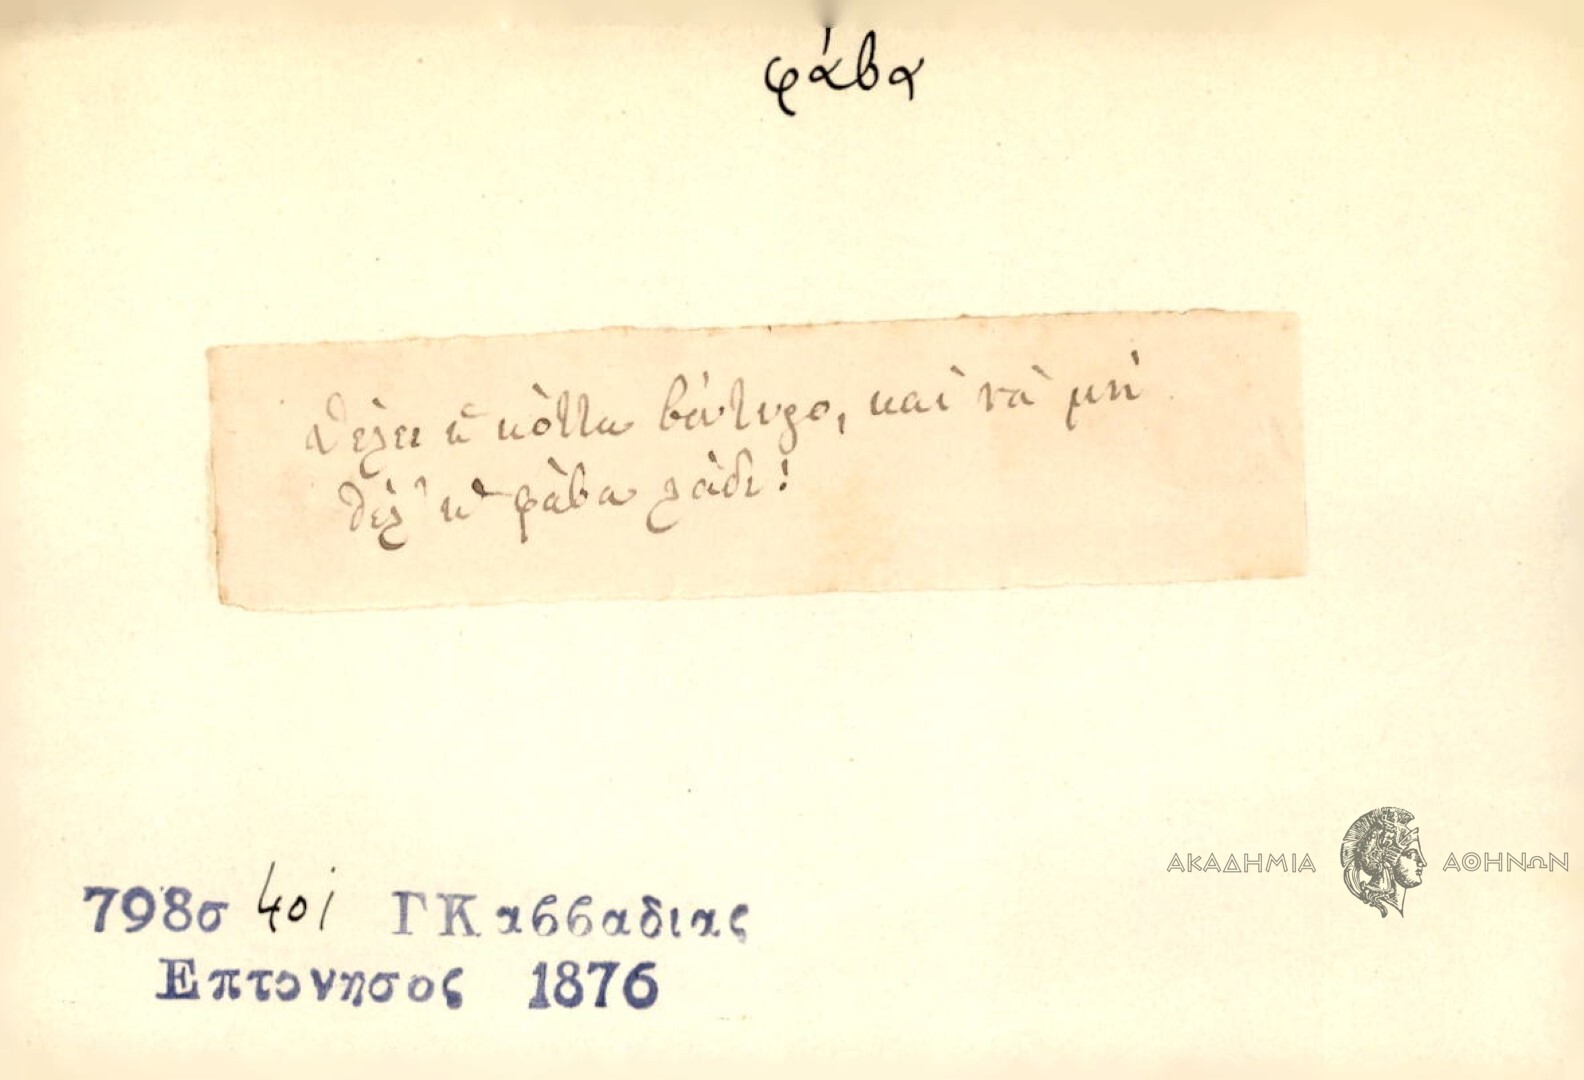 φάβα
Θέλει ἡ κόττα βούτυρο, καὶ νὰ μὴ
θέλ' ἡ φάβα λάδι!
798σ 401 ΓΚαββαδιας
Επτονησος 1876
ΑΚΑΔΗΜΙΑ ΑΘΗΝΩΝ